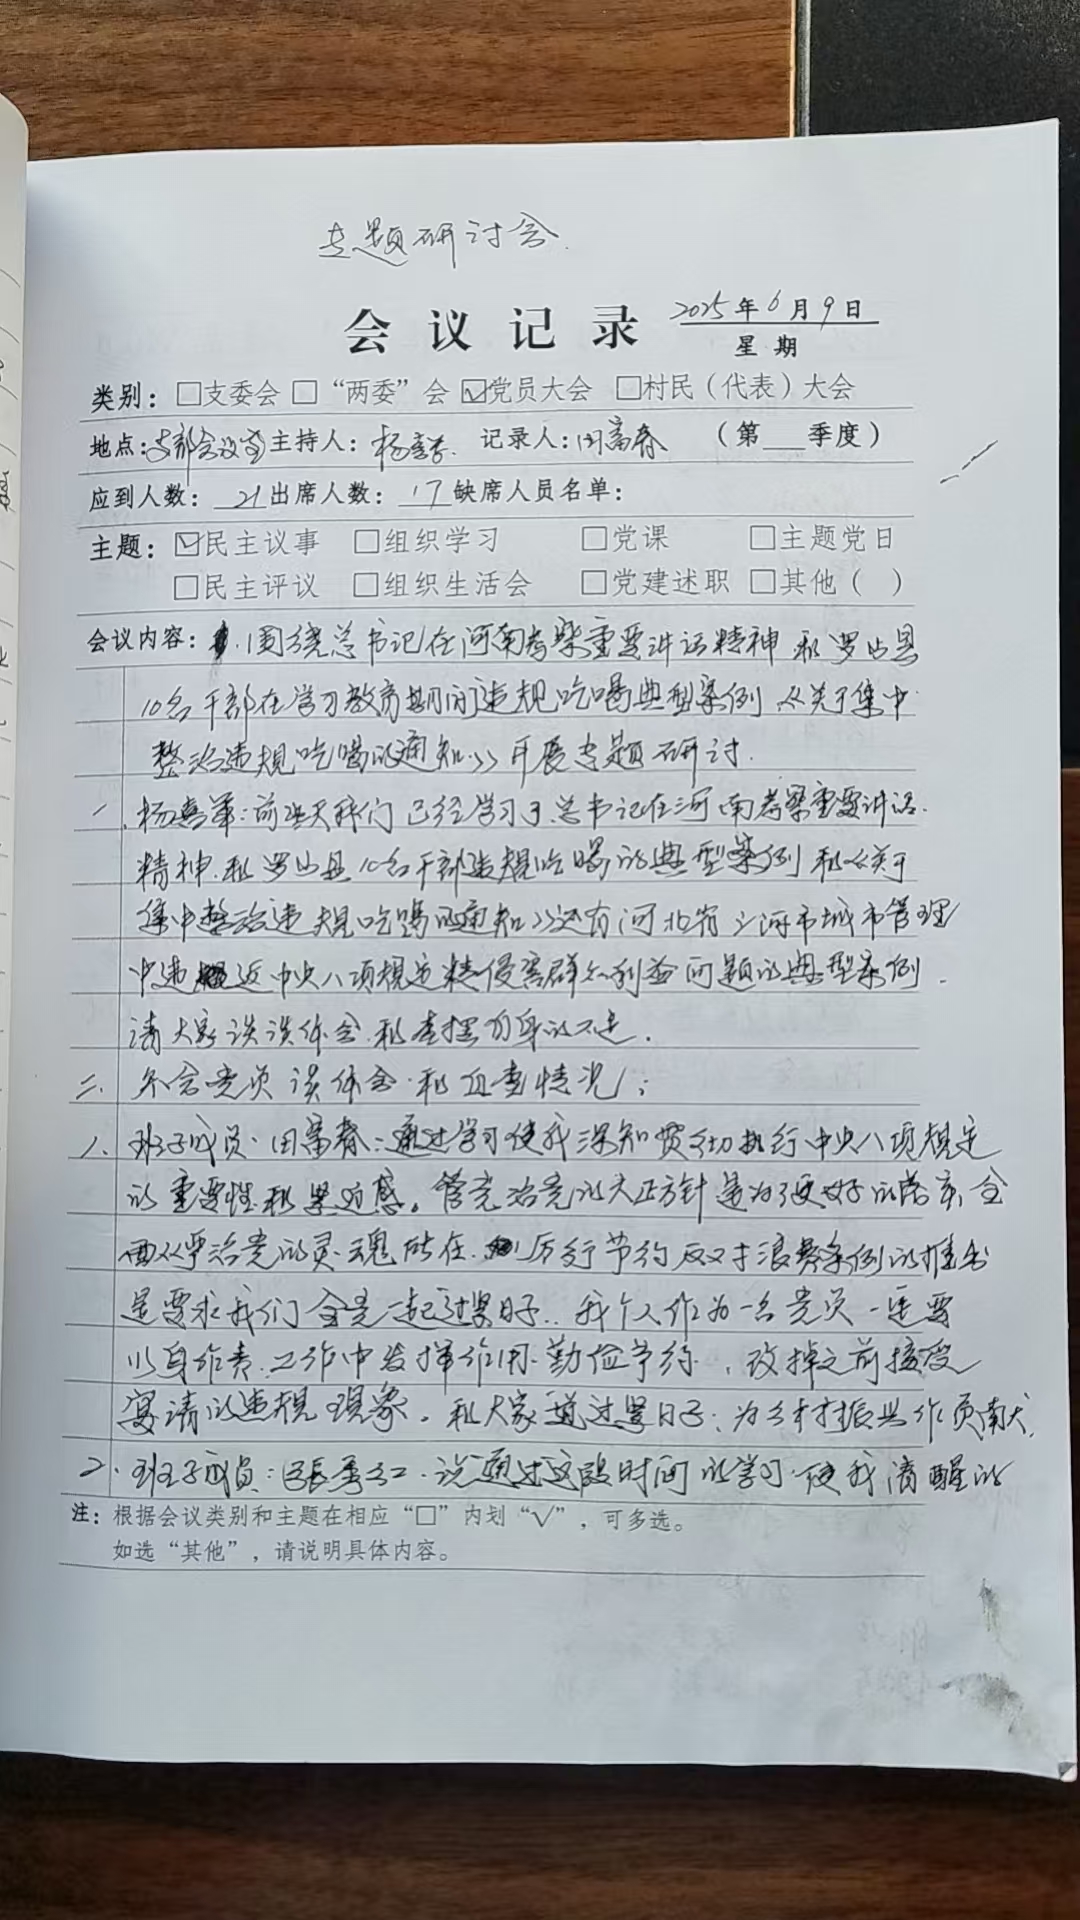 专题研讨会.
会议记录 2025年6月9日
星期
类别: □支委会 □“两委”会 ☑党员大会 □村民(代表)大会
地点:支部会议室 主持人: 杨 记录人:田富春 (第__季度)
应到人数: 21 出席人数: 17 缺席人员名单:
主题: ☑民主议事 □组织学习 □党课 □主题党日
□民主评议 □组织生活会 □党建述职 □其他( )
会议内容: 1围绕总书记在河南考察重要讲话精神和罗山县
10名干部在学习教育期间违规吃喝典型案例《关于集中
整治违规吃喝的通知》开展专题研讨.
一.杨喜军:前些天我们已经学习了总书记在河南考察重要讲话.
精神.和罗山县10名干部违规吃喝的典型案例和《关于
集中整治违规吃喝的通知》还有河北省三河市城市管理
中违 中央八项规定精侵害群众利益问题的典型案例.
请大家谈谈体会.和查摆自身的不足.
二. 参会党员谈体会.和自查情况:
1. 班子成员.田富春:通过学习使我深知贯彻执行中央八项规定
的重要性和紧迫感。管党治党的大正方针是为了更好的落实全
面从严治党的灵魂所在. 厉行节约反对浪费条例的推出
是要求我们全党一起过紧日子..我个人作为一名党员一定要
以身作责.工作中发挥作用.勤俭节约.,改掉之前接受
宴请的违规现象。和大家一起过紧日子.为乡村振兴作贡献.
2.班子成员:张秀红.说通过这段时间的学习.使我清醒的
注: 根据会议类别和主题在相应“□”内划“√”,可多选。
如选“其他”,请说明具体内容。